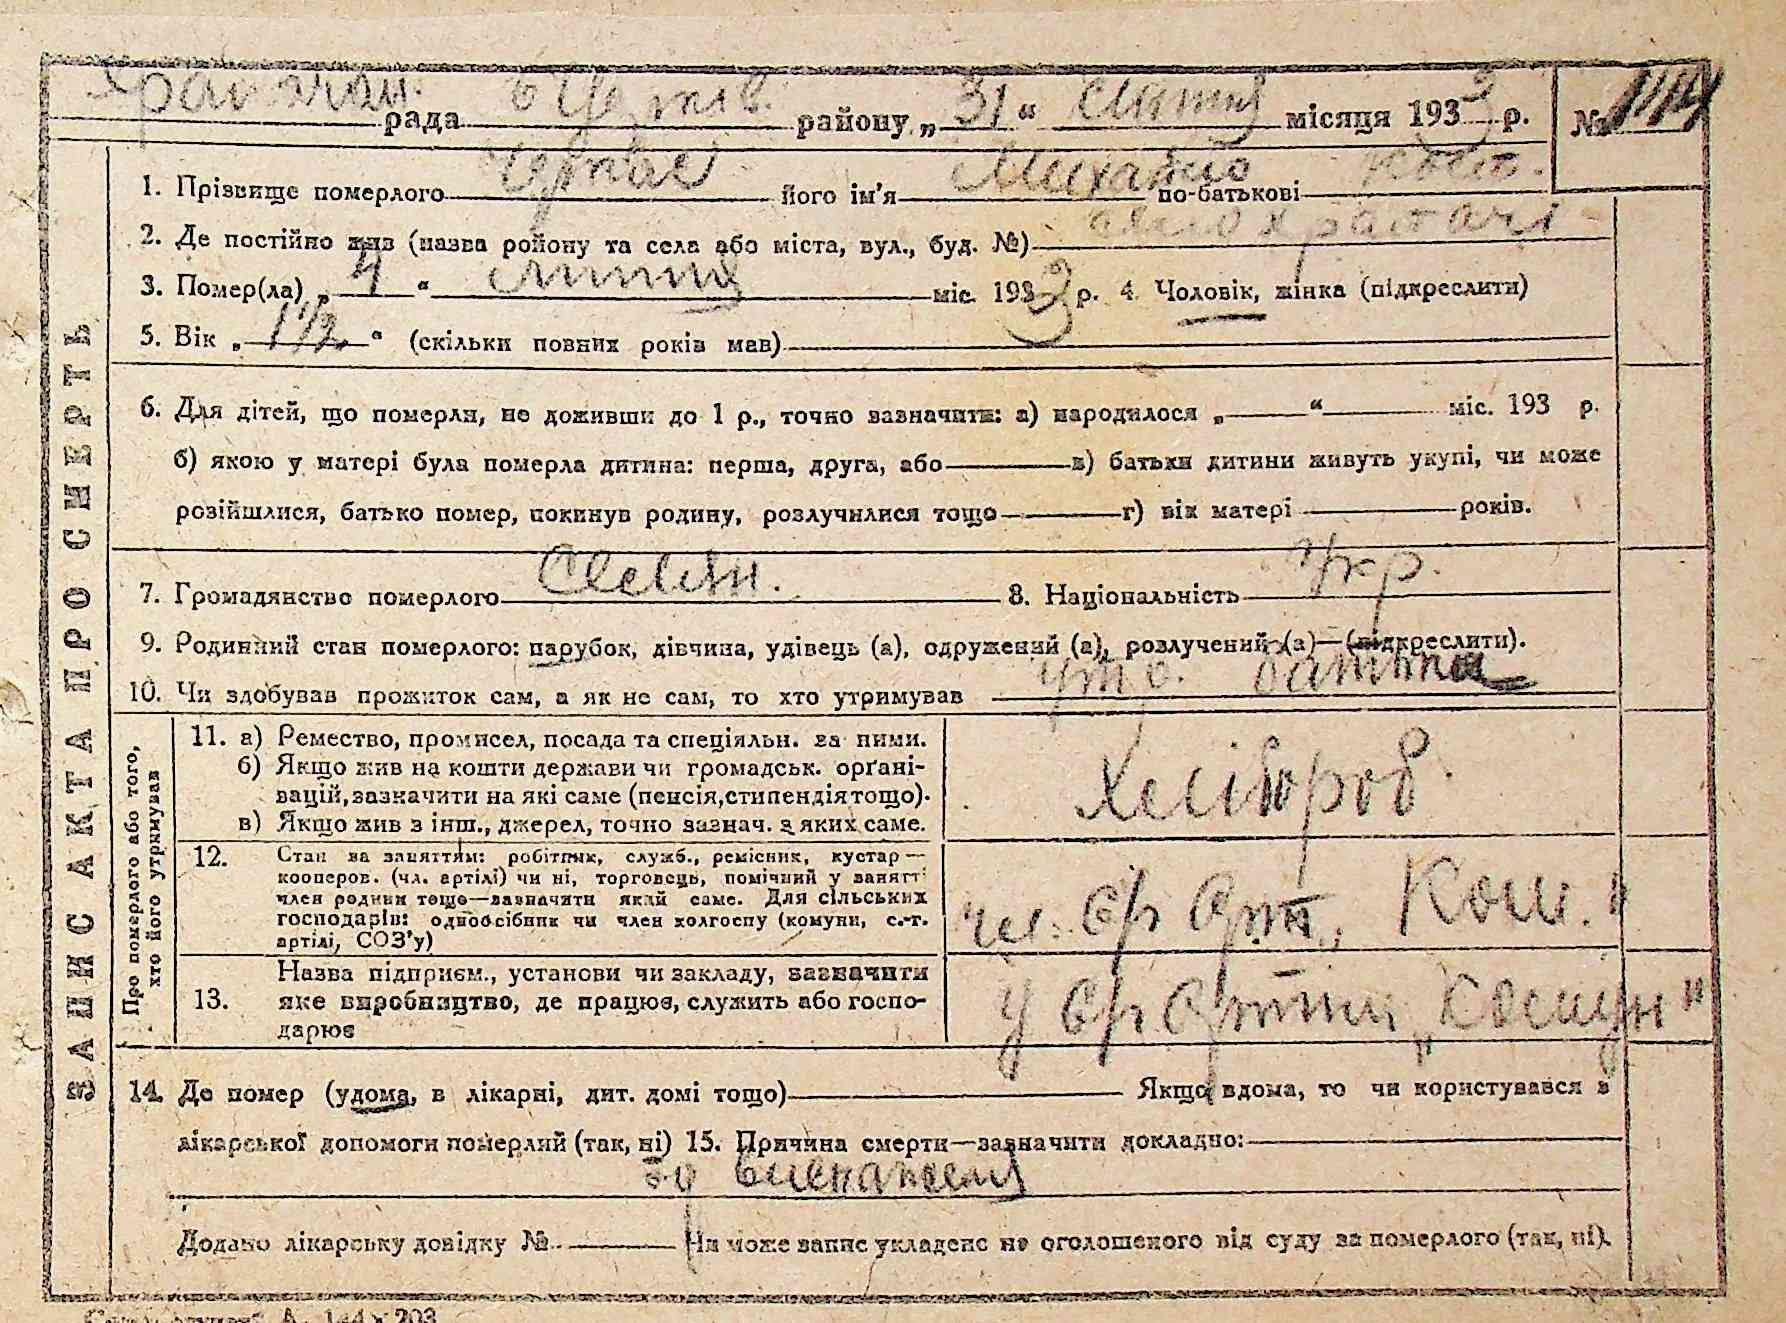 Храпачан. рада б Церків. району „ 31 “ липня місяця 1933 р. № 114
1. Прізвище померлого його ім'я Михайло по-батькові
2. Де постійно жив (назва ройону та села або міста, вул., буд. №) село Храпачі
3. Помер(ла) „ 4 “ липня міс. 1933 р. 4. Чоловік, жінка (підкреслити)
5. Вік „ 1 1/2 “ (скільки повних років мав)
6. Для дітей, що померли, не доживши до 1 р., точно зазначити: а) народилося „ “ міс. 193 р.
б) якою у матері була померла дитина: перша, друга, або в) батьки дитини живуть укупі, чи може
розійшлися, батько помер, покинув родину, розлучилися тощо г) вік матері років.
7. Громадянство померлого Селян. 8. Національність Укр.
9. Родинний стан померлого: парубок, дівчина, удівець (а), одружений (а), розлучений (а)—(підкреслити).
10. Чи здобував прожиток сам, а як не сам, то хто утримував утр. батька
ЗАПИС АКТА ПРО СМЕРТЬ
Про померлого або того, хто його утримував
11. а) Ремество, промисел, посада та спеціяльн. за ними.
б) Якщо жив на кошти держави чи громадськ. орґані-
зацій, зазначити на які саме (пенсія, стипендія тощо).
в) Якщо жив з інш., джерел, точно зазнач. з яких саме.
Хлібороб.
12. Стан за заняттям: робітник, служб., ремісник, кустар—
кооперов. (чл. артілі) чи ні, торговець, помічний у занятті
член родини тощо—зазначити який саме. Для сільських
господарів: одноосібник чи член холгоспу (комуни, с.-г.
артілі, СОЗ'у)
чл. с/г Арт.
13. Назва підприєм., установи чи закладу, зазначити
яке виробництво, де працює, служить або госпо-
дарює
у с/г Артілі
14. Де помер (удома, в лікарні, дит. домі тощо) Якщо вдома, то чи користувався з
лікарської допомоги померлий (так, ні) 15. Причина смерти—зазначити докладно:
виснаження
Додано лікарську довідку № Чи може запис укладено не оголошеного від суду за померлого (так, ні).
А. 144 x 203